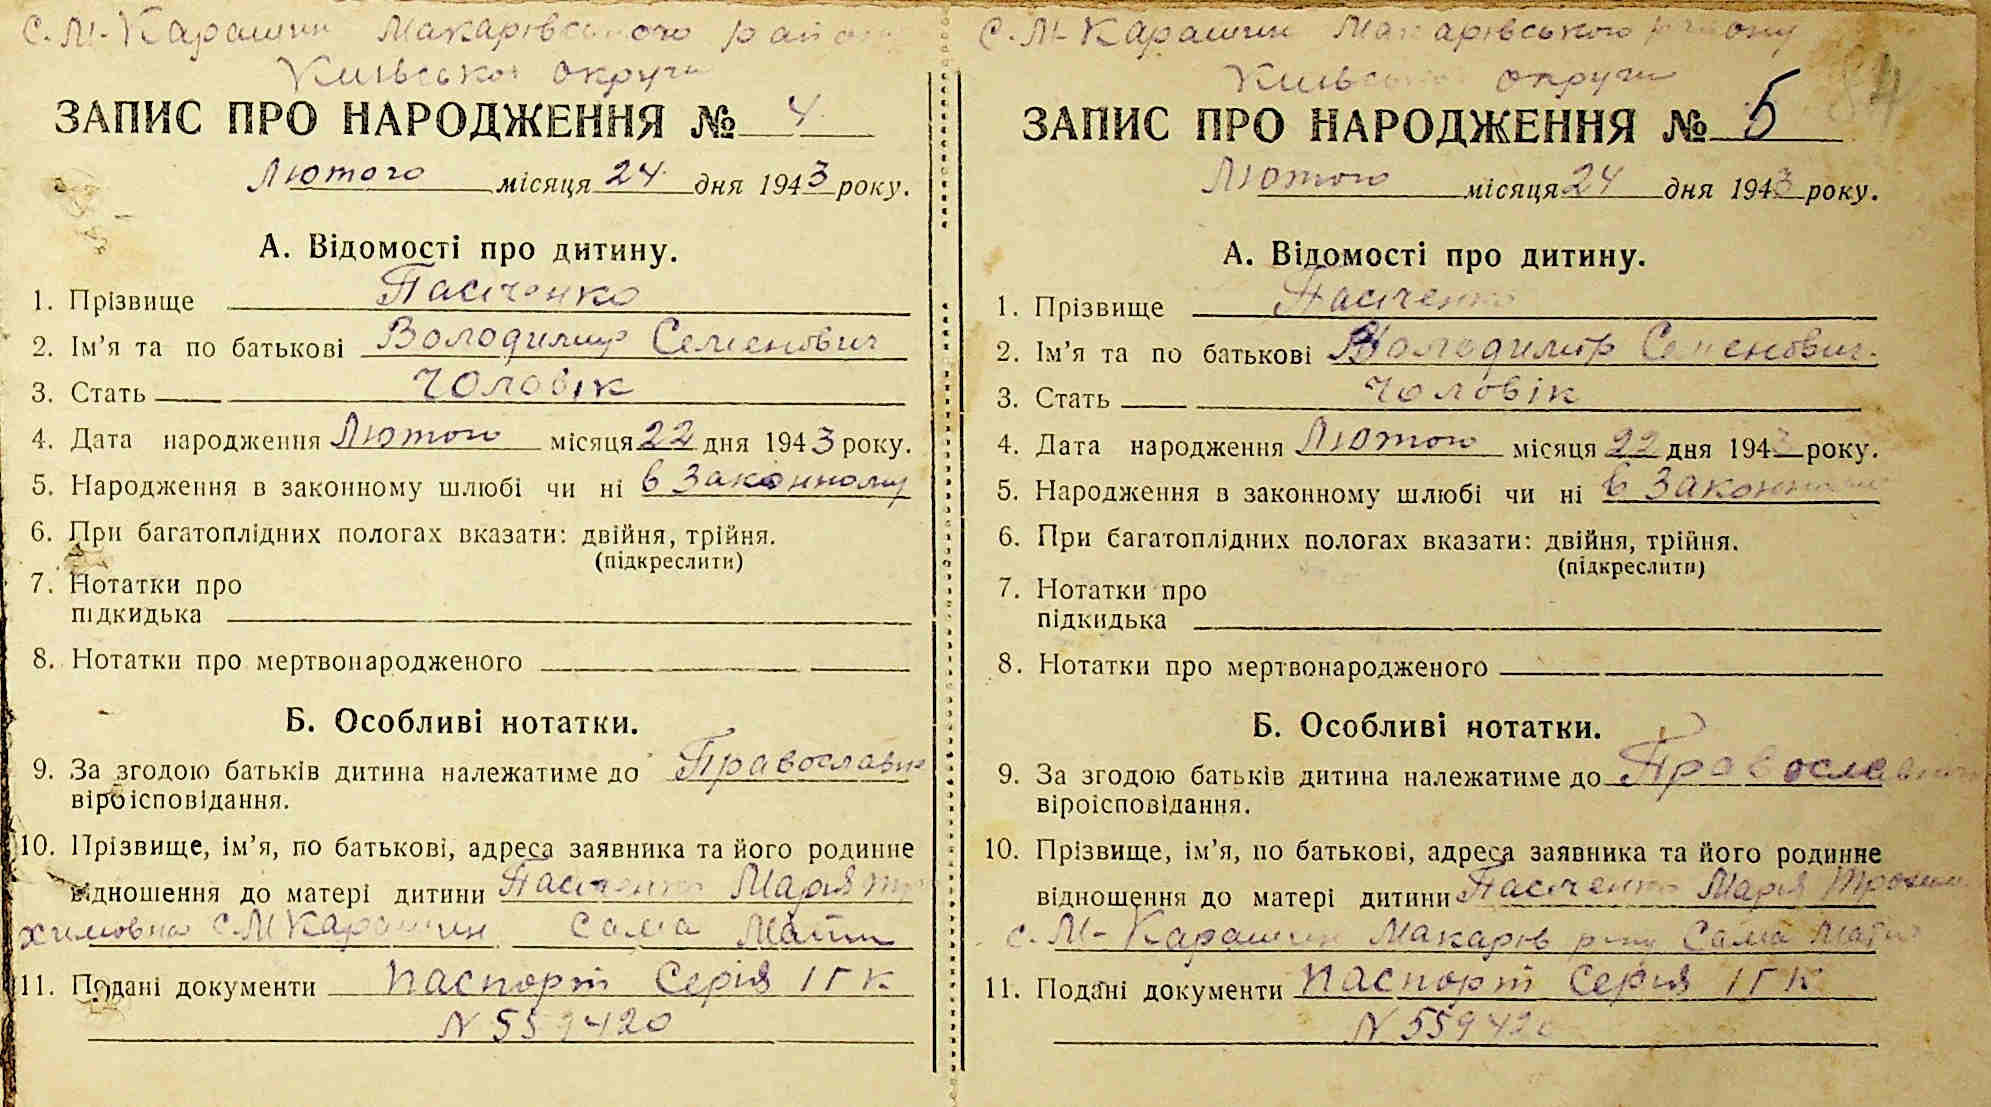 с. М-Карашин Макарівського району
Київської округи
ЗАПИС ПРО НАРОДЖЕННЯ № 4
Лютого місяця 24 дня 1943 року.
А. Відомості про дитину.
1. Прізвище Пасіченко
2. Ім’я та по батькові Володимир Семенович
3. Стать чоловік
4. Дата народження Лютого місяця 22 дня 1943 року.
5. Народження в законному шлюбі чи ні в законному
6. При багатоплідних пологах вказати: двійня, трійня.
(підкреслити)
7. Нотатки про
підкидька
8. Нотатки про мертвонародженого
Б. Особливі нотатки.
9. За згодою батьків дитина належатиме до
віроісповідання.
10. Прізвище, ім’я, по батькові, адреса заявника та його родинне
відношення до матері дитини Пасіченко Марія Тро
химовна с. М Карашин сама мати
11. Подані документи паспорт Серія ІГК
N 559420
с. М-Карашин Макарівського району
Київської округи
84
ЗАПИС ПРО НАРОДЖЕННЯ № 5
Лютого місяця 24 дня 1943 року.
А. Відомості про дитину.
1. Прізвище Пасіченко
2. Ім’я та по батькові Володимир Семенович
3. Стать чоловік
4. Дата народження Лютого місяця 22 дня 1943 року.
5. Народження в законному шлюбі чи ні в законному
6. При багатоплідних пологах вказати: двійня, трійня.
(підкреслити)
7. Нотатки про
підкидька
8. Нотатки про мертвонародженого
Б. Особливі нотатки.
9. За згодою батьків дитина належатиме до
віроісповідання.
10. Прізвище, ім’я, по батькові, адреса заявника та його родинне
відношення до матері дитини Пасіченко Марія
с. М-Карашин Макарів сама мати
11. Подані документи паспорт Серія ІГК
N 559420